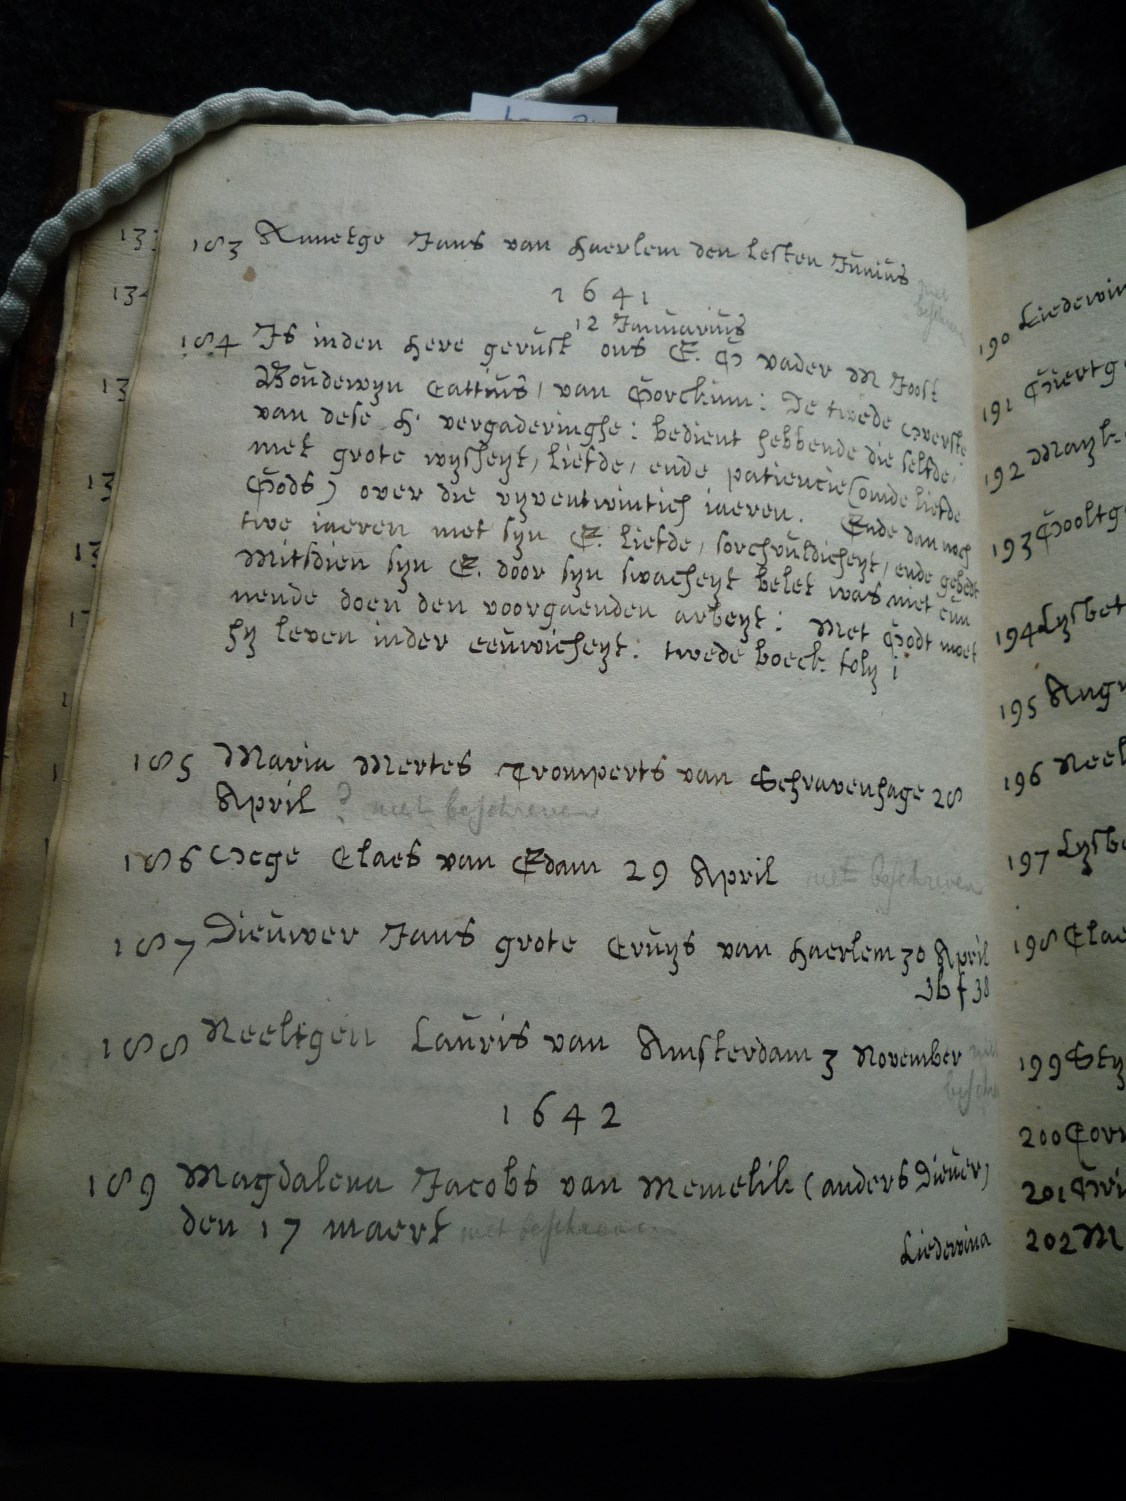 183 Annetge Jans van Haerlem den lesten Junius
niet
beschreven
1641
12 Januarius
184 Is inden Here gerust ons E. G vader M Joost
Boudewyn Cattius, van Gorckum: De twede Overste
van dese H. vergaderinghe: bedient hebbende die selfde,
met grote wysheyt, liefde, ende patiencie (omde liefde
Gods) over die vyventwintich iaeren. Ende dan noch
twe iaeren met syn E. liefde, sorchvuldicheyt, ende gebedt
Mitsdien syn E. door syn swacheyt belet was niet cun
nende doen den voorgaenden arbeyt: Met Godt moet
hy leven inder eeuwicheyt: twede boeck foly i
185 Maria Mertes Tromperts van Schravenhage 28
April ? niet beschreven
186 Oege Claes van Edam 29 April niet beschreven
187 Dieuwer Jans grote Cruys van Haerlem 30 April
3b f 38
188 Neeltgen Lauris van Amsterdam 3 November niet
besch
1642
189 Magdalena Jacobs van Memelik (anders Diewer)
den 17 maert niet beschreven
Liedewina
133
134
13
13
13
1
190 Liedewin
191 Giertg
192 Mayk
193 Gooltg
194 Lysbet
195 Aug
196 Neel
197 Lysb
198 Clae
199 Sty
200 Corn
201 Gri
202 M